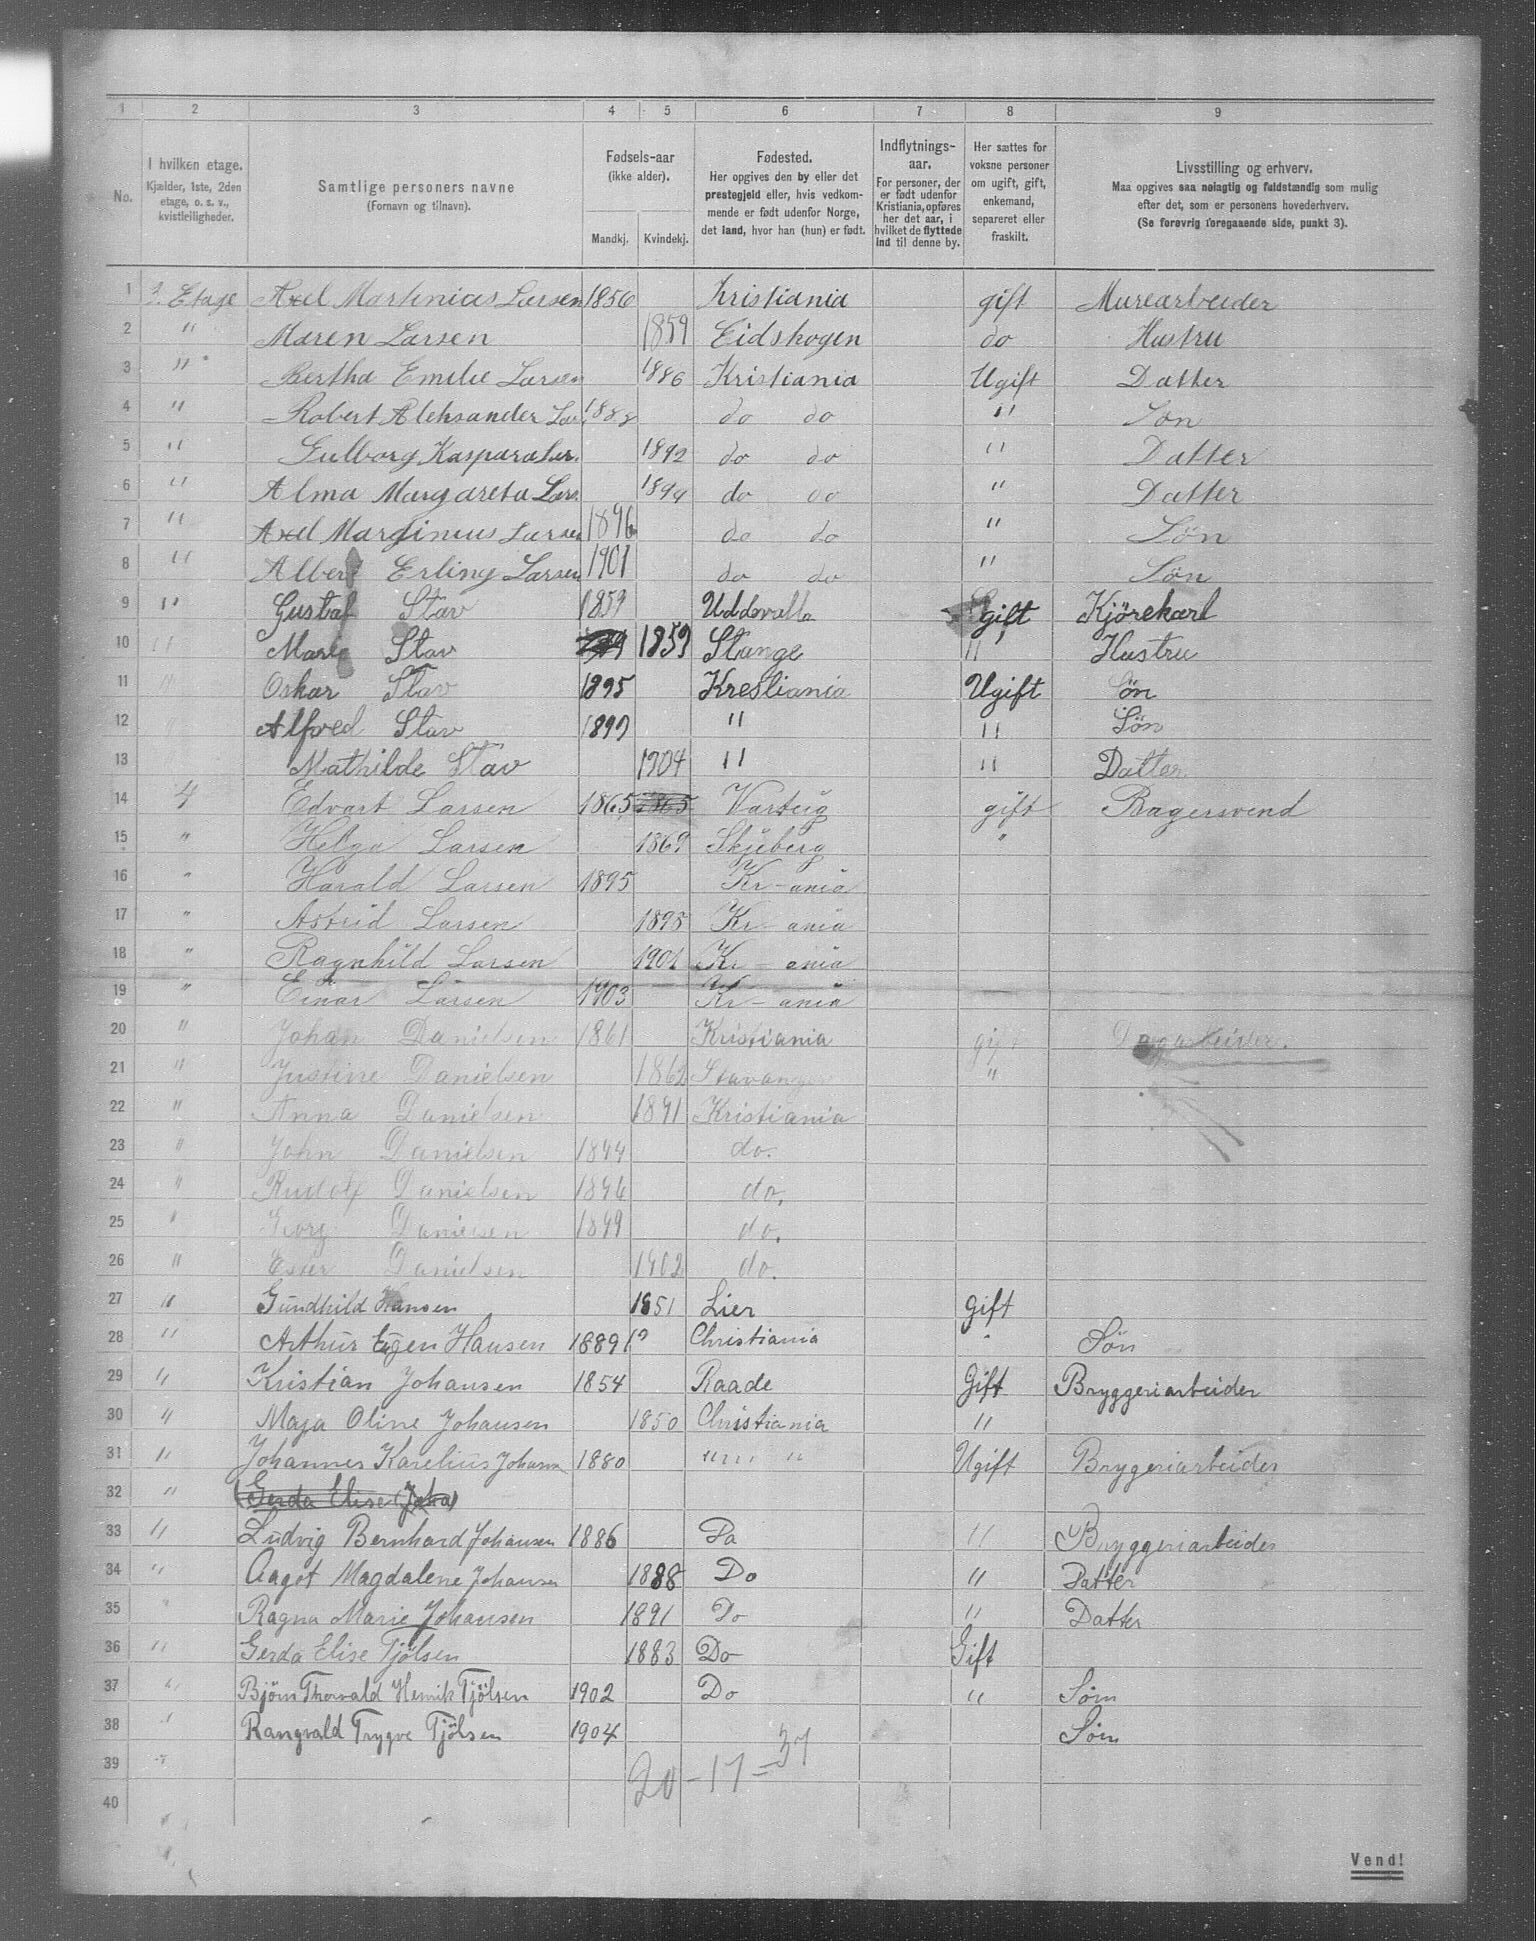 1 2 3 4 5 6 7 8 9
No. I hvilken etage. Kjælder, 1ste, 2den etage, o. s. v., kvistleiligheder. Samtlige personers navne (Fornavn og tilnavn). Fødsels-aar (ikke alder). Mandkj. Kvindekj. Fødested. Her opgives den by eller det prestegjeld eller, hvis vedkommende er født udenfor Norge, det land, hvor han (hun) er født. Indflytnings-aar. For personer, der er født udenfor Kristiania, opføres her det aar, i hvilket de flyttede ind til denne by. Her sættes for voksne personer om ugift, gift, enkemand, separeret eller fraskilt. Livsstilling og erhverv. Maa opgives saa nøiagtig og fuldstændig som mulig efter det, som er personens hovederhverv. (Se forøvrig foregaaende side, punkt 3).
1 3. Etage Axel Martinias Larsen 1856 Kristiania gift Murearbeider
2 " Maren Larsen 1859 Eidskogen do Hustru
3 " Bertha Emilie Larsen 1886 Kristiania Ugift Datter
4 " Robert Aleksander Lar. 1888 do do " Søn
5 " Gulborg Kaspara Lar. 1892 do do " Datter
6 " Alma Margareta Lars. 1894 do do " Datter
7 " Axel Marginius Larsen 1896 do do " Søn
8 " Albert Erling Larsen 1901 do do " Søn
9 " Gustaf Stav 1859 Uddevalla gift Kjörekarl
10 " Marie Stav 1859 Stange " Hustru
11 " Oskar Stav 1895 Krestiania Ugift Søn
12 Alfred Stav 1899 " " Søn
13 Mathilde Stav 1904 " " Datter
14 4 Edvart Larsen 1865 1865 Varteig gift Bagersvend
15 " Helga Larsen 1869 Skjeberg "
16 " Harald Larsen 1895 Kr-ania
17 " Astrid Larsen 1895 Kr-ania
18 " Ragnhild Larsen 1901 Kr-ania
19 " Einar Larsen 1903 Kr-ania
20 " Johan Danielsen 1861 Kristiania gift Dagarbeider.
21 " Justine Danielsen 1862 Stavanger "
22 " Anna Danielsen 1891 Kristiania
23 " John Danielsen 1894 do.
24 " Rudolf Danielsen 1896 do.
25 " Georg Danielsen 1899 do.
26 " Ester Danielsen 1902 do.
27 " Gundhild Hansen 1851 Lier Gift
28 " Arthur Eugen Hansen 1889 Christiania Søn
29 " Kristian Johansen 1854 Raade Gift Bryggeriarbeider
30 " Maja Oline Johansen 1850 Christiania "
31 " Johannes Karelius Johansen 1880 " " Ugift Bryggeriarbeider
32 " (Gerda Elise (Joha)
33 " Ludvig Bernhard Johansen 1886 Do " Bryggeriarbeider
34 " Aagot Magdalene Johansen 1888 Do " Datter
35 " Ragna Marie Johansen 1891 Do " Datter
36 " Gerda Elise Tjölsen 1883 Do Gift
37 " Björn Thorvald Henrik Tjölsen 1902 Do " Søm
38 " Rangvald Trygve Tjölsen 1904 Søm
39 " 20-17=37
40
Vend!